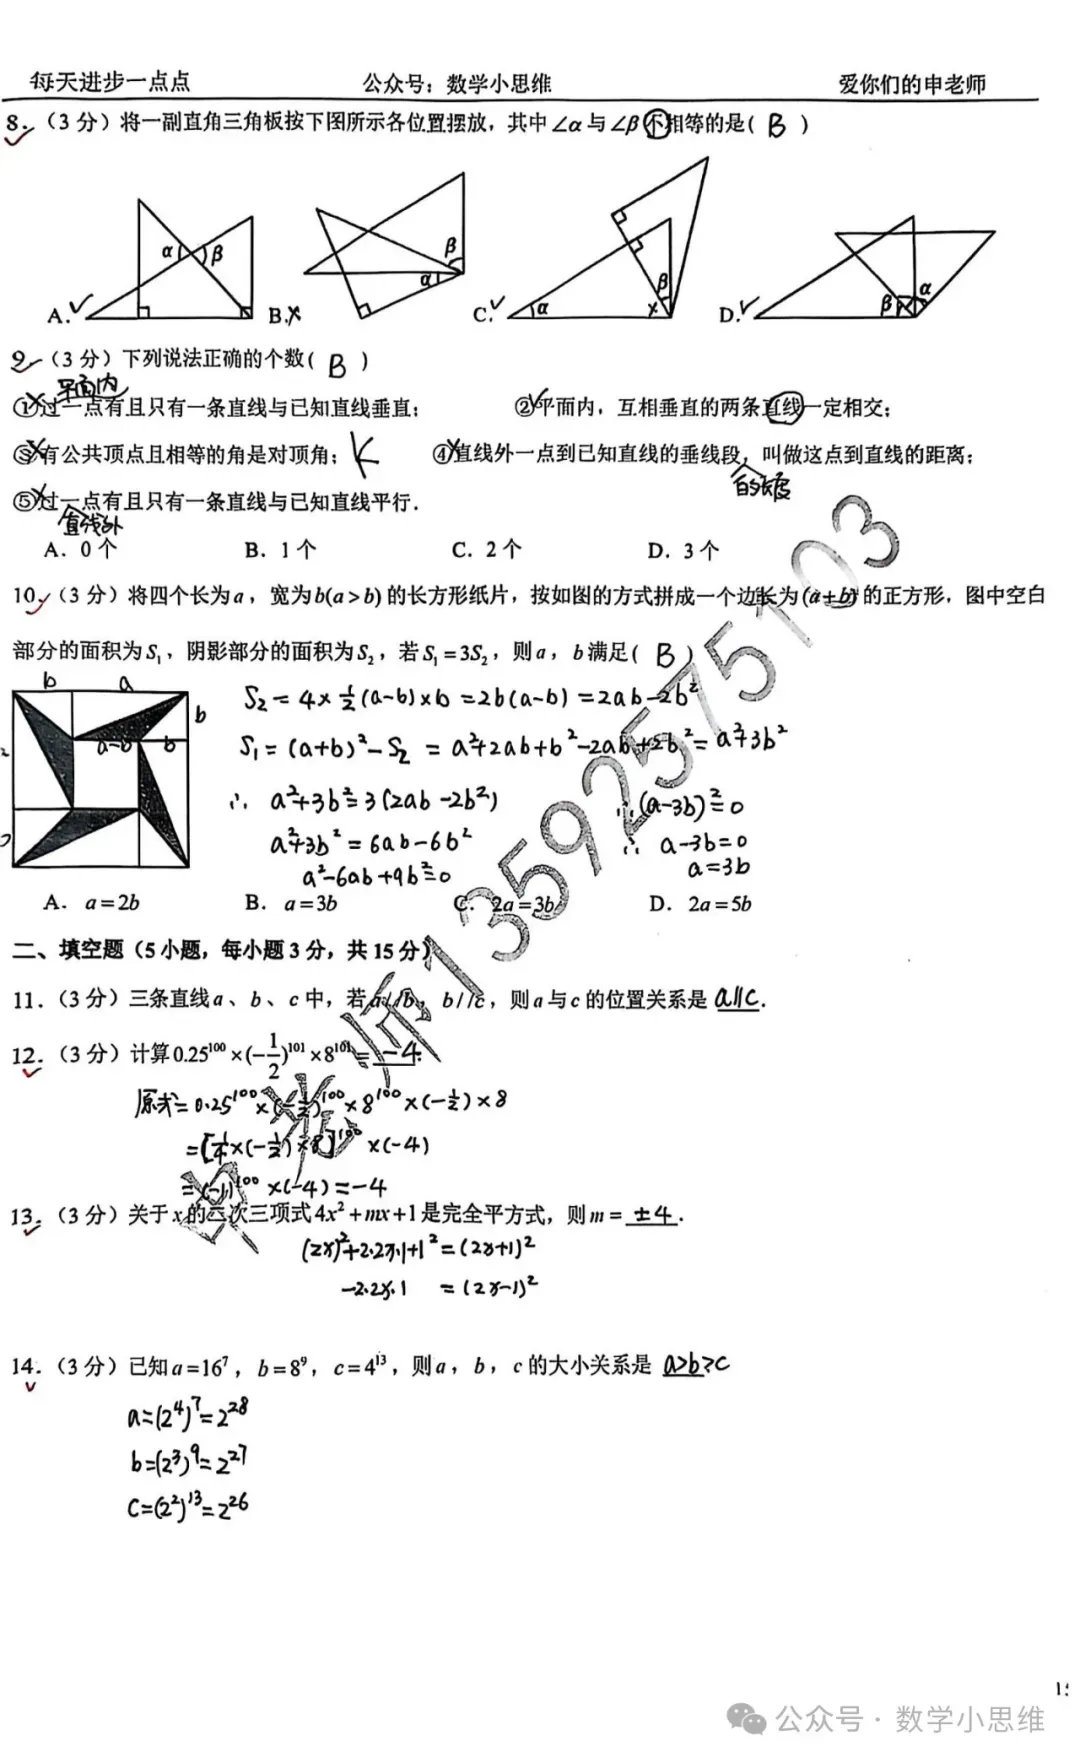 每天进步一点点 公众号：数学小思维 爱你们的申老师
8.（3 分）将一副直角三角板按下图所示各位置摆放，其中∠α与∠β不相等的是( B )
α β β α α β x β α
A.√ B.× C.√ D.√
9.（3 分）下列说法正确的个数( B )
平面内
①×过一点有且只有一条直线与已知直线垂直； ②√平面内，互相垂直的两条直线一定相交；
③×有公共顶点且相等的角是对顶角； ④×直线外一点到已知直线的垂线段，叫做这点到直线的距离；
的长度
⑤×过一点有且只有一条直线与已知直线平行.
直线外
A．0 个 B．1 个 C．2 个 D．3 个
10.（3 分）将四个长为a，宽为b(a>b)的长方形纸片，按如图的方式拼成一个边长为(a+b)的正方形，图中空白
部分的面积为S₁，阴影部分的面积为S₂，若S₁=3S₂，则a，b满足( B )
b a b a-b b
S₂=4×½(a-b)×b=2b(a-b)=2ab-2b²
S₁=(a+b)²-S₂=a²+2ab+b²-2ab+2b²=a²+3b²
∴ a²+3b²=3(2ab-2b²) ∴(a-3b)²=0
a²+3b²=6ab-6b² ∴ a-3b=0
a²-6ab+9b²=0 a=3b
A．a=2b B．a=3b C．2a=3b D．2a=5b
二、填空题（5 小题，每小题 3 分，共 15 分）
11.（3 分）三条直线a、b、c中，若a//b，b//c，则a与c的位置关系是 a∥c．
12.（3 分）计算0.25¹⁰⁰×(-1/2)¹⁰¹×8¹⁰¹= -4．
原式=0.25¹⁰⁰×(-½)¹⁰⁰×8¹⁰⁰×(-½)×8
=[¼×(-½)×8]¹⁰⁰×(-4)
=(-1)¹⁰⁰×(-4)=-4
13.（3 分）关于x的二次三项式4x²+mx+1是完全平方式，则m= ±4．
(2x)²+2·2x·1+1²=(2x+1)²
-2·2x·1 =(2x-1)²
14.（3 分）已知a=16⁷，b=8⁹，c=4¹³，则a，b，c的大小关系是 a>b>c
a=(2⁴)⁷=2²⁸
b=(2³)⁹=2²⁷
c=(2²)¹³=2²⁶
申老师13592575103
公众号·数学小思维